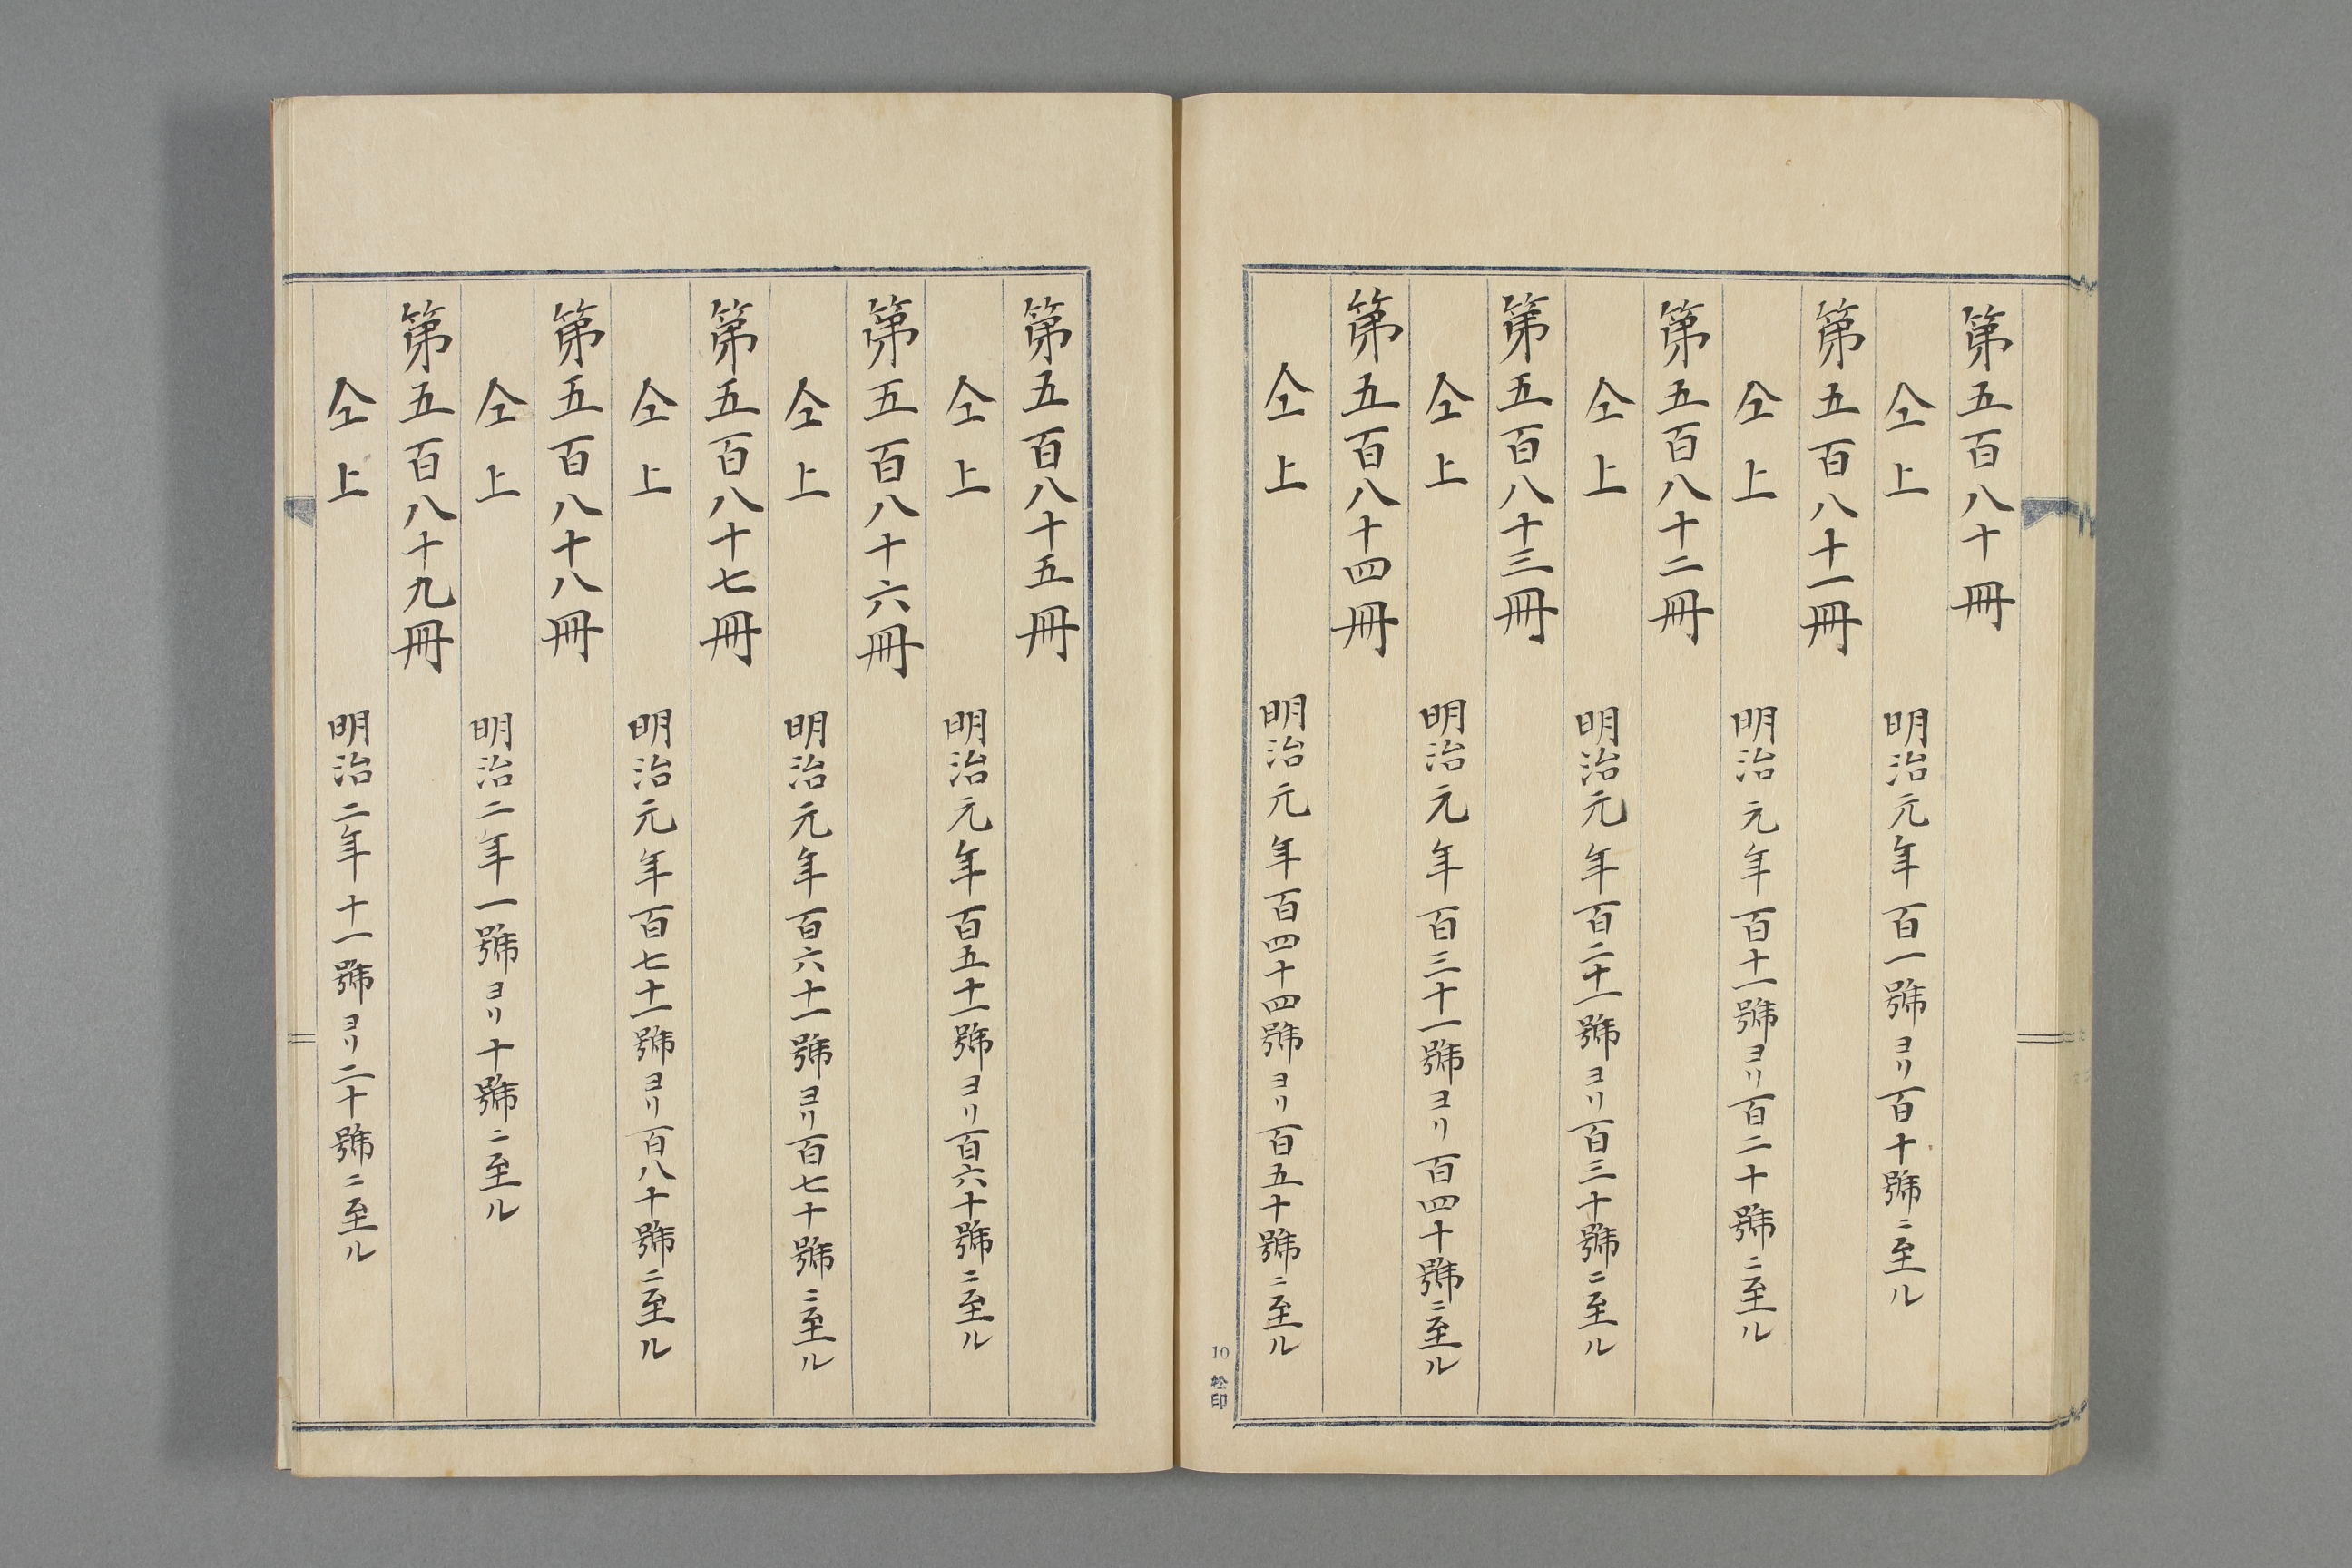 第五百八十冊
仝上 明治元年百一號ヨリ百十號ニ至ル
第五百八十一冊
仝上 明治元年百十一號ヨリ百二十號ニ至ル
第五百八十二冊
仝上 明治元年百二十一號ヨリ百三十號ニ至ル
第五百八十三冊
仝上 明治元年百三十一號ヨリ百四十號ニ至ル
第五百八十四冊
仝上 明治元年百四十四號ヨリ百五十號ニ至ル
10 松印
第五百八十五冊
仝上 明治元年百五十一號ヨリ百六十號ニ至ル
第五百八十六冊
仝上 明治元年百六十一號ヨリ百七十號ニ至ル
第五百八十七冊
仝上 明治元年百七十一號ヨリ百八十號ニ至ル
第五百八十八冊
仝上 明治二年一號ヨリ十號ニ至ル
第五百八十九冊
仝上 明治二年十一號ヨリ二十號ニ至ル